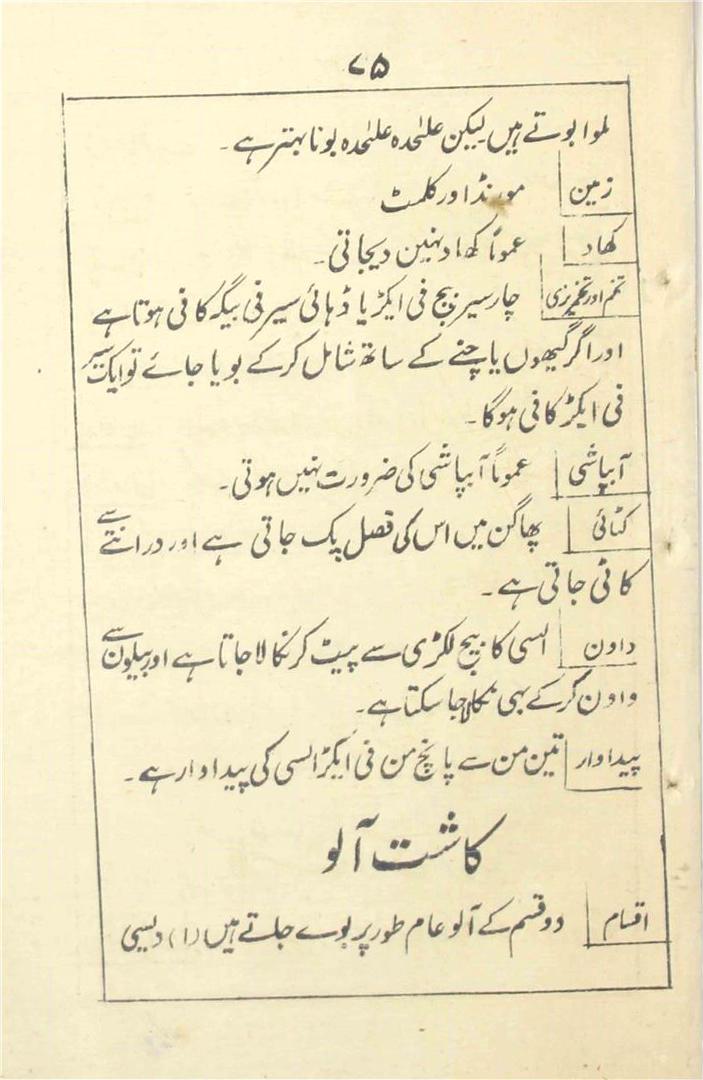 ۷۵
ملوا بوتے ہیں لیکن علیٰحدہ علیٰحدہ بونا بہتر ہے۔
زمین مورنڈ اور کلمٹ
کھاد عموماً کھاد نہین دیجاتی۔
تخم اور تخمریزی چار سیر بیج فی ایکڑ یا ڈہائی سیر فی بیگہ کافی ہوتا ہے
اور اگر گیہوں یا چنے کے ساتھ شامل کرکے بویا جائے تو ایک سیر
فی ایکڑ کافی ہوگا۔
آبپاشی عموماً آبپاشی کی ضرورت نہیں ہوتی۔
کٹائی پھاگن میں اس کی فصل پک جاتی ہے اور درانتے سے
کاٹی جاتی ہے۔
داون السی کا بیج لکڑی سے پیٹ کر نکالا جاتا ہے اور بیلون سے
داون کرکے بہی نکالا جا سکتا ہے۔
پیداوار تین من سے پانچ من فی ایکڑ السی کی پیداوار ہے۔
کاشت آلو
اقسام دو قسم کے آلو عام طور پر بوے جاتے ہیں (۱) دیسی